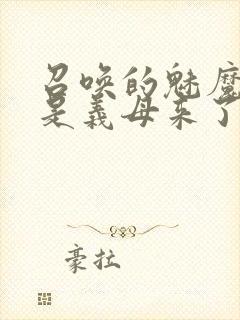 召唤的魅魔
是义母来了
豪拉